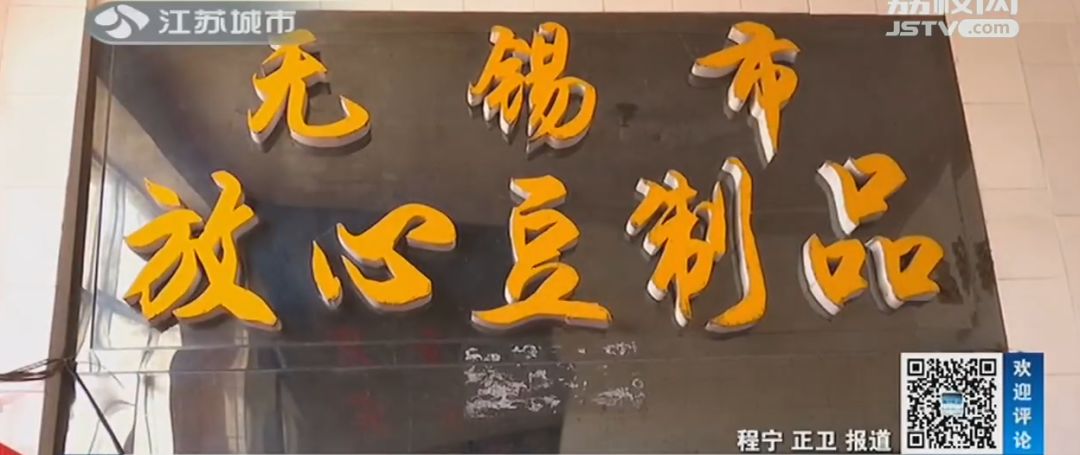 江苏城市
荔枝网
JSTV.com
无锡市
放心豆制品
程宁 正卫 报道
欢迎评论